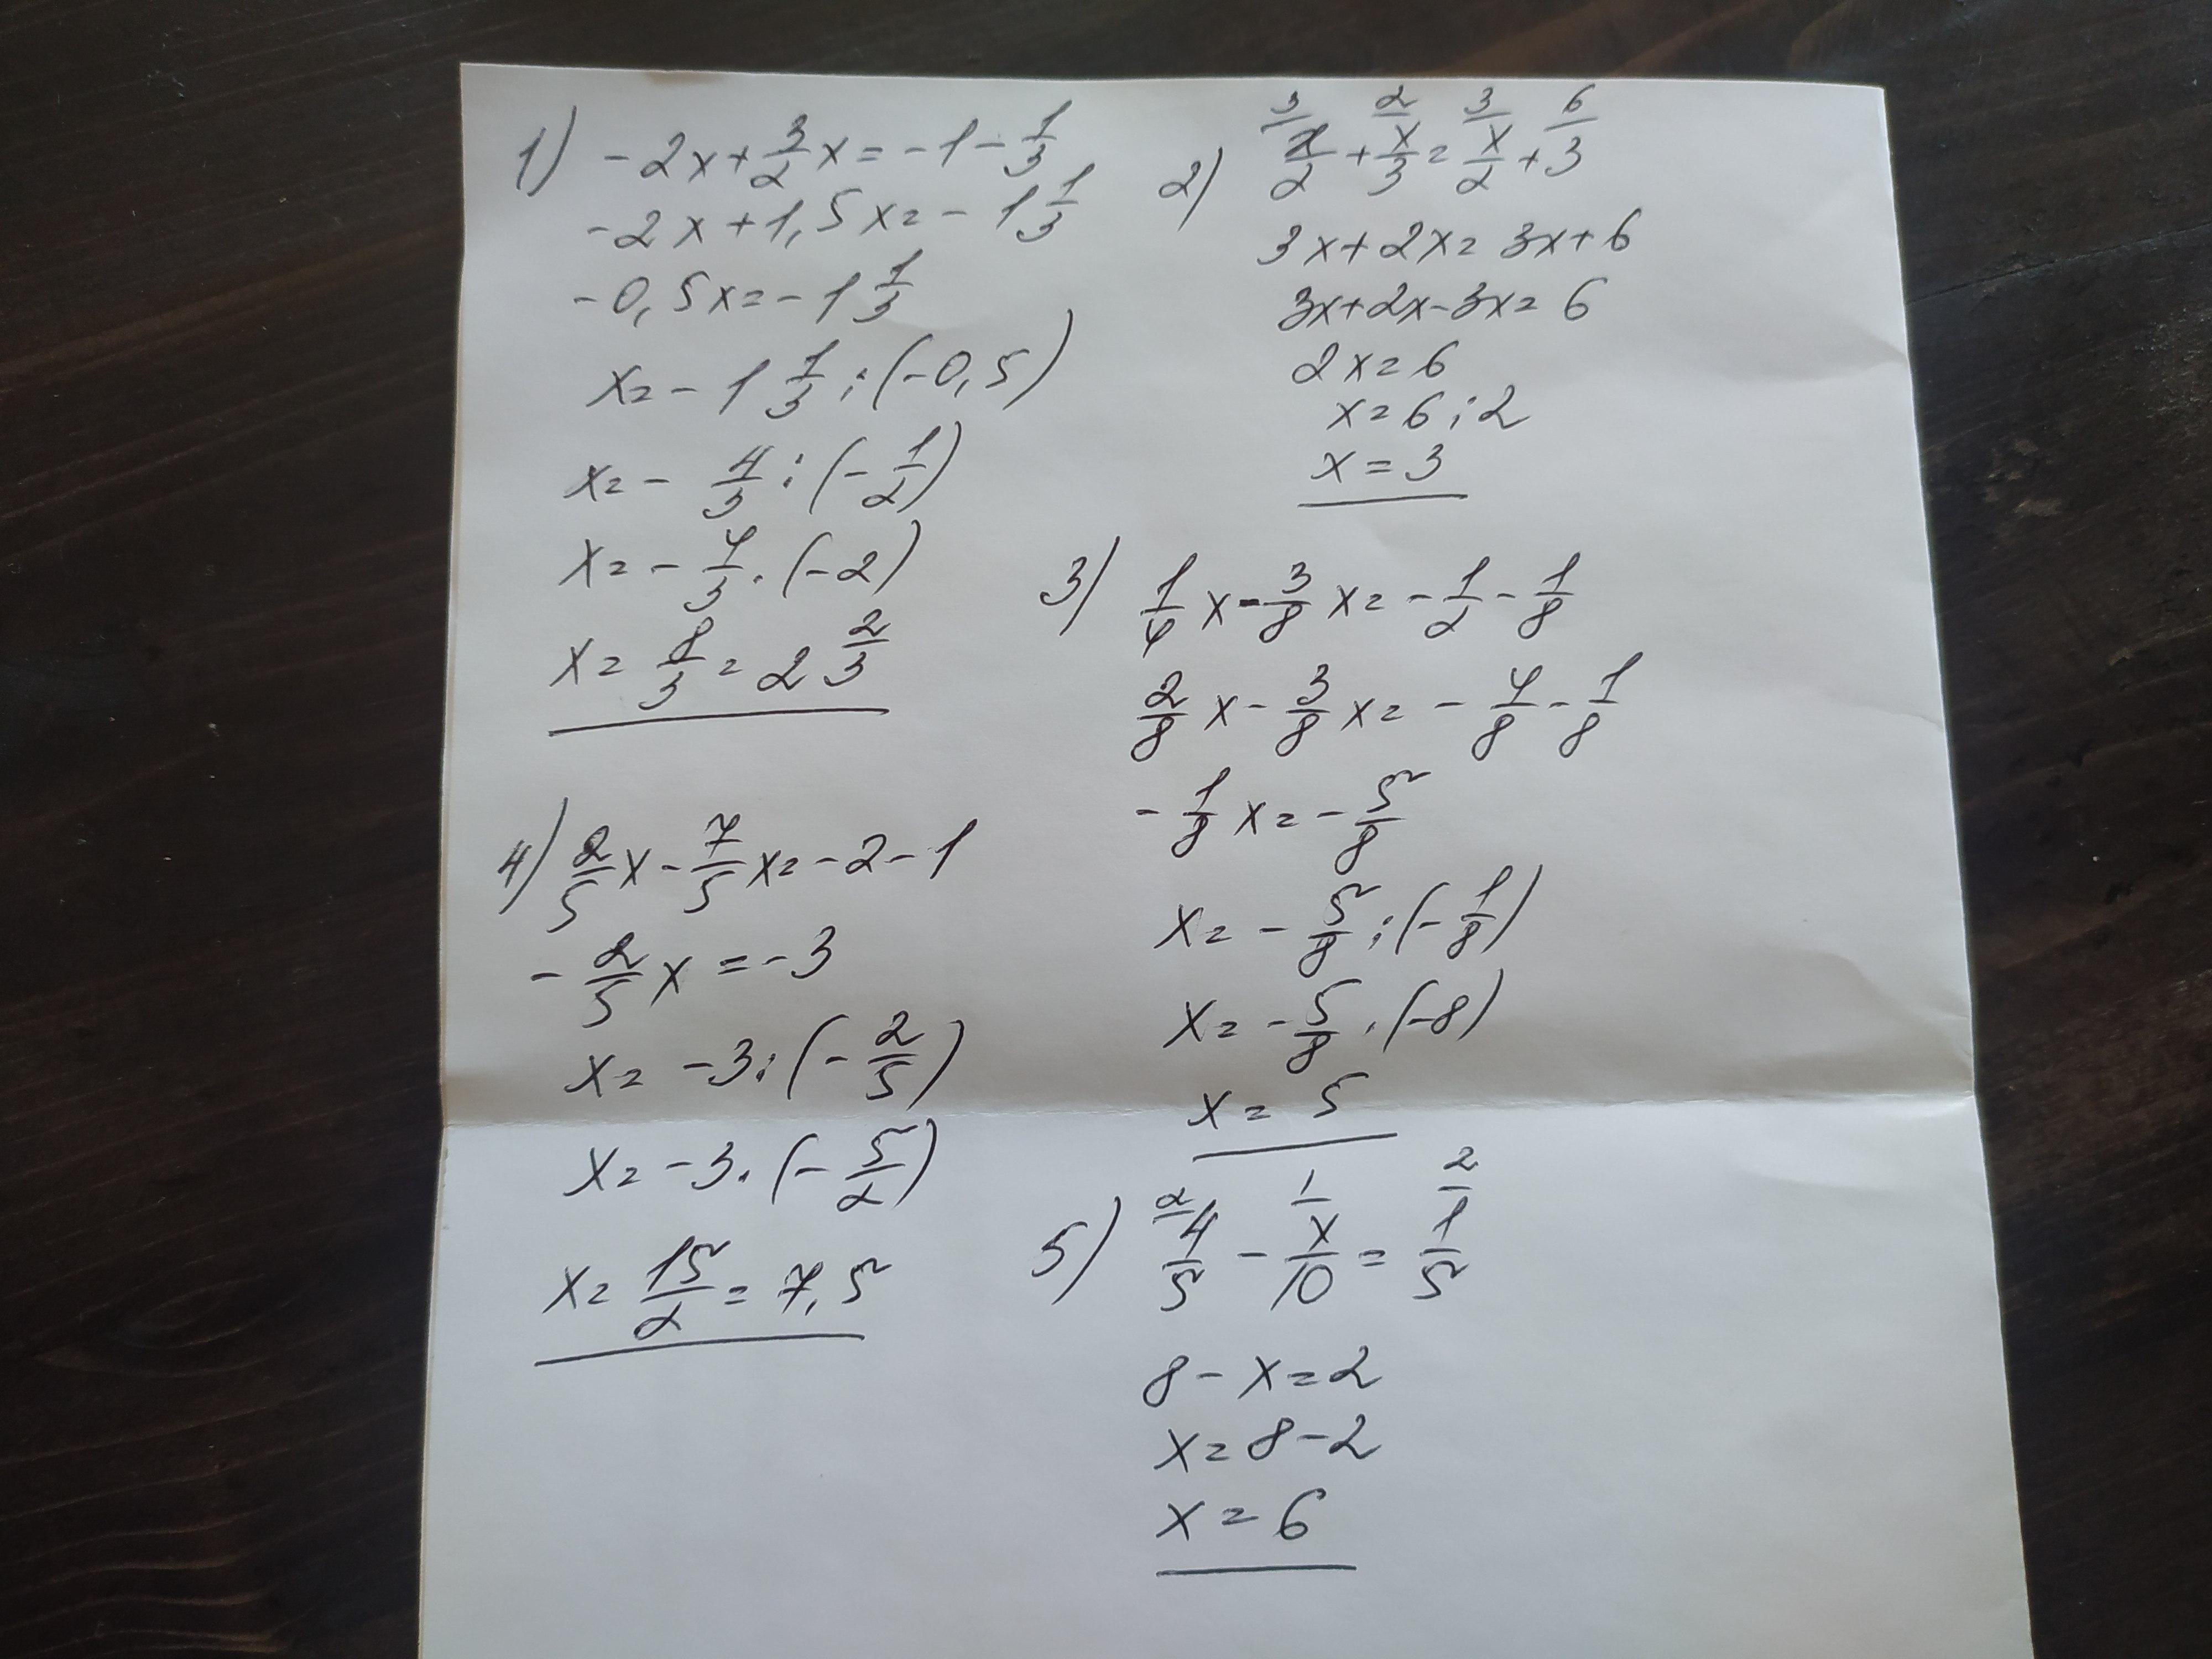 1) -2x+3/2x=-1-1/3
-2x+1,5x=-1 1/3
-0,5x=-1 1/3
x=-1 1/3:(-0,5)
x=-4/3:(-1/2)
x=-4/3·(-2)
x=8/3=2 2/3
3 2 3 6
2) x/2+x/3=x/2+3
3x+2x=3x+6
3x+2x-3x=6
2x=6
x=6:2
x=3
3) 1/4x-3/8x=-1/2-1/8
2/8x-3/8x=-4/8-1/8
-1/8x=-5/8
x=-5/8:(-1/8)
x=-5/8·(-8)
x=5
4) 2/5x-7/5x=-2-1
-2/5x=-3
x=-3:(-2/5)
x=-3·(-5/2)
x=15/2=7,5
2 1 2
5) 4/5-x/10=1/5
8-x=2
x=8-2
x=6